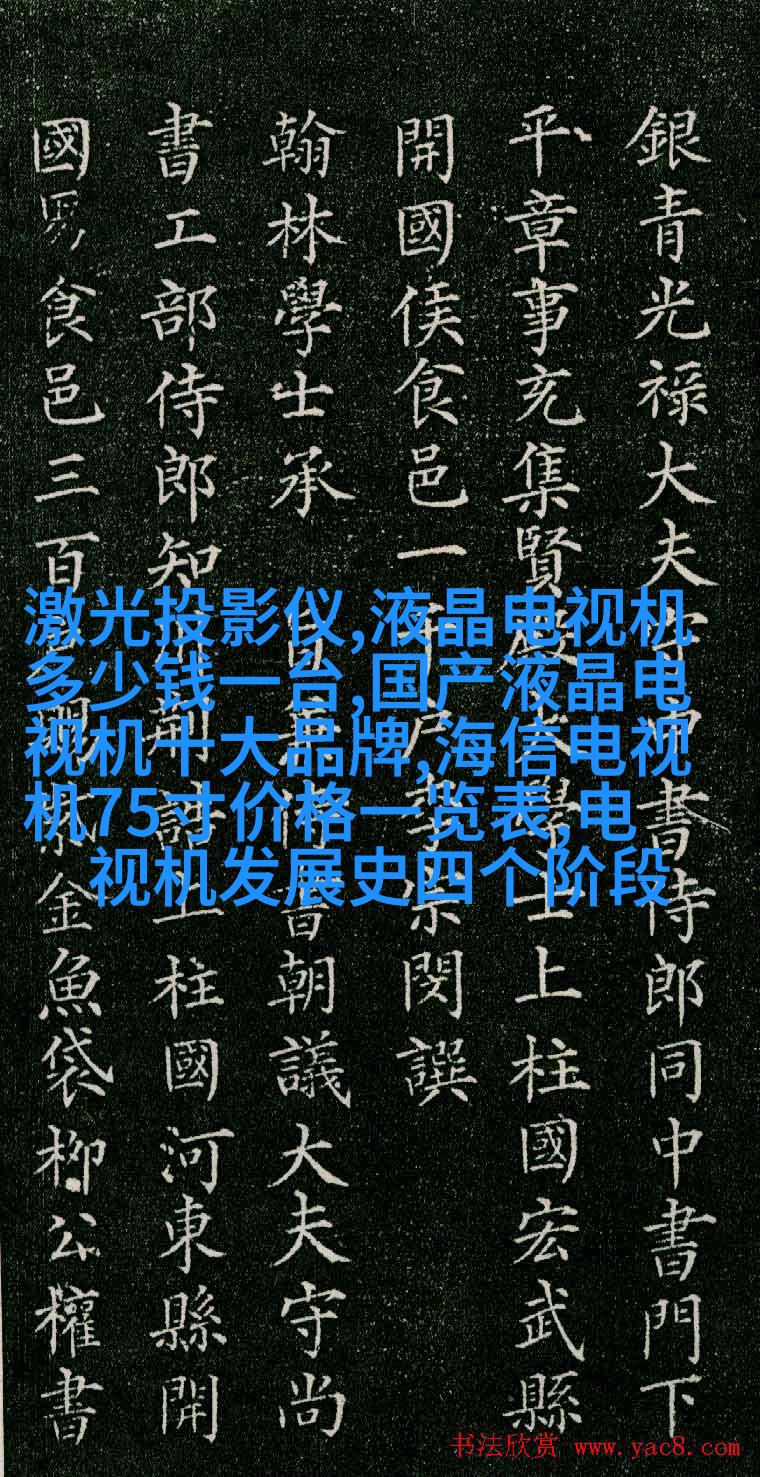 銀青光禄大夫守中書侍郎同中書門下
平章事充集賢殿大學士上柱國宏武縣
開國侯食邑一千戶李宗閔譔
翰林學士承旨兼侍書朝議大夫守尚
書工部侍郎知制誥上柱國河東縣開
國男食邑三百金魚袋柳公權書
激光投影仪,液晶电视机
多少钱一台,国产液晶电
视机十大品牌,海信电视
机75寸价格一览表,电
视机发展史四个阶段
书法欣赏 www.yac8.com